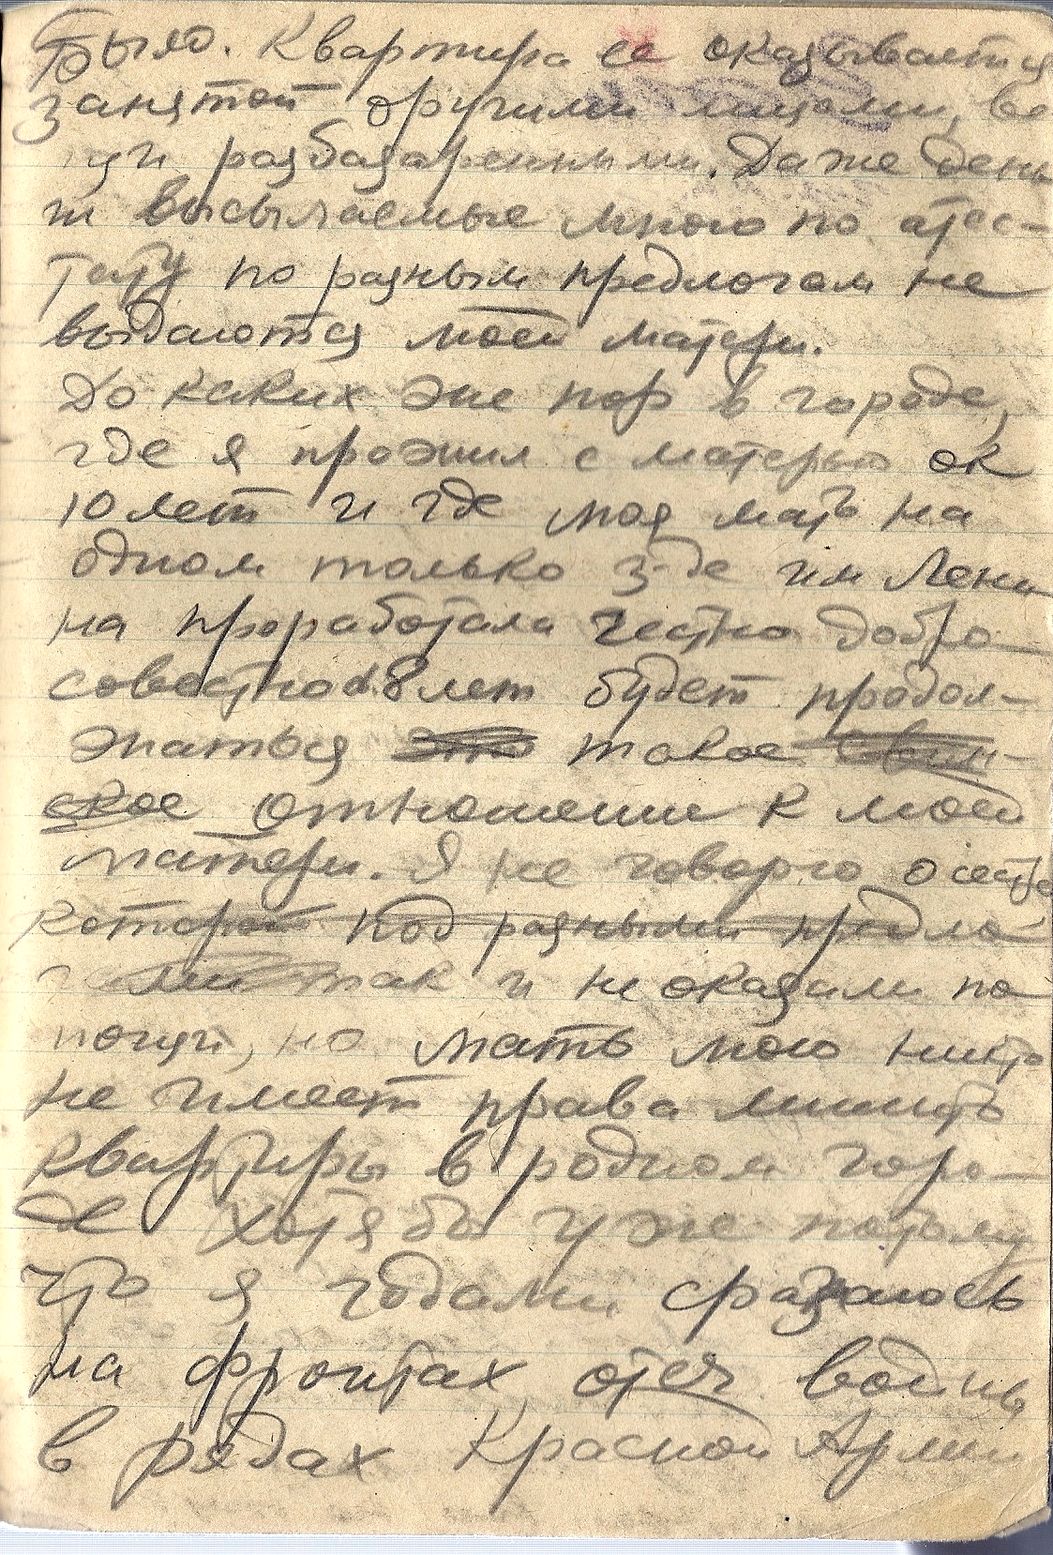 было. Квартира ее оказывается
занятой другими лицами, ве
щи разбазаренными. Даже день
ги высылаемые мною по атес-
тату по разным предлогам не
выдаются моей матери.
До каких же пор в городе,
где я прожил с матерью ок
10 лет и где моя мать на
одном только з-де им Лени
на проработала честно добро
совестно 8 лет будет продол-
жаться это такое свин-
ское отношение к моей
матери. Я не говорю о сестре
которой под разными предло
гами так и не оказали по
мощи, но мать мою никто
не имеет права лишить
квартиры в родном горо-
де хотя бы уже потому
что я годами сражаюсь
на фронтах, отеч войны
в рядах Красной Армии